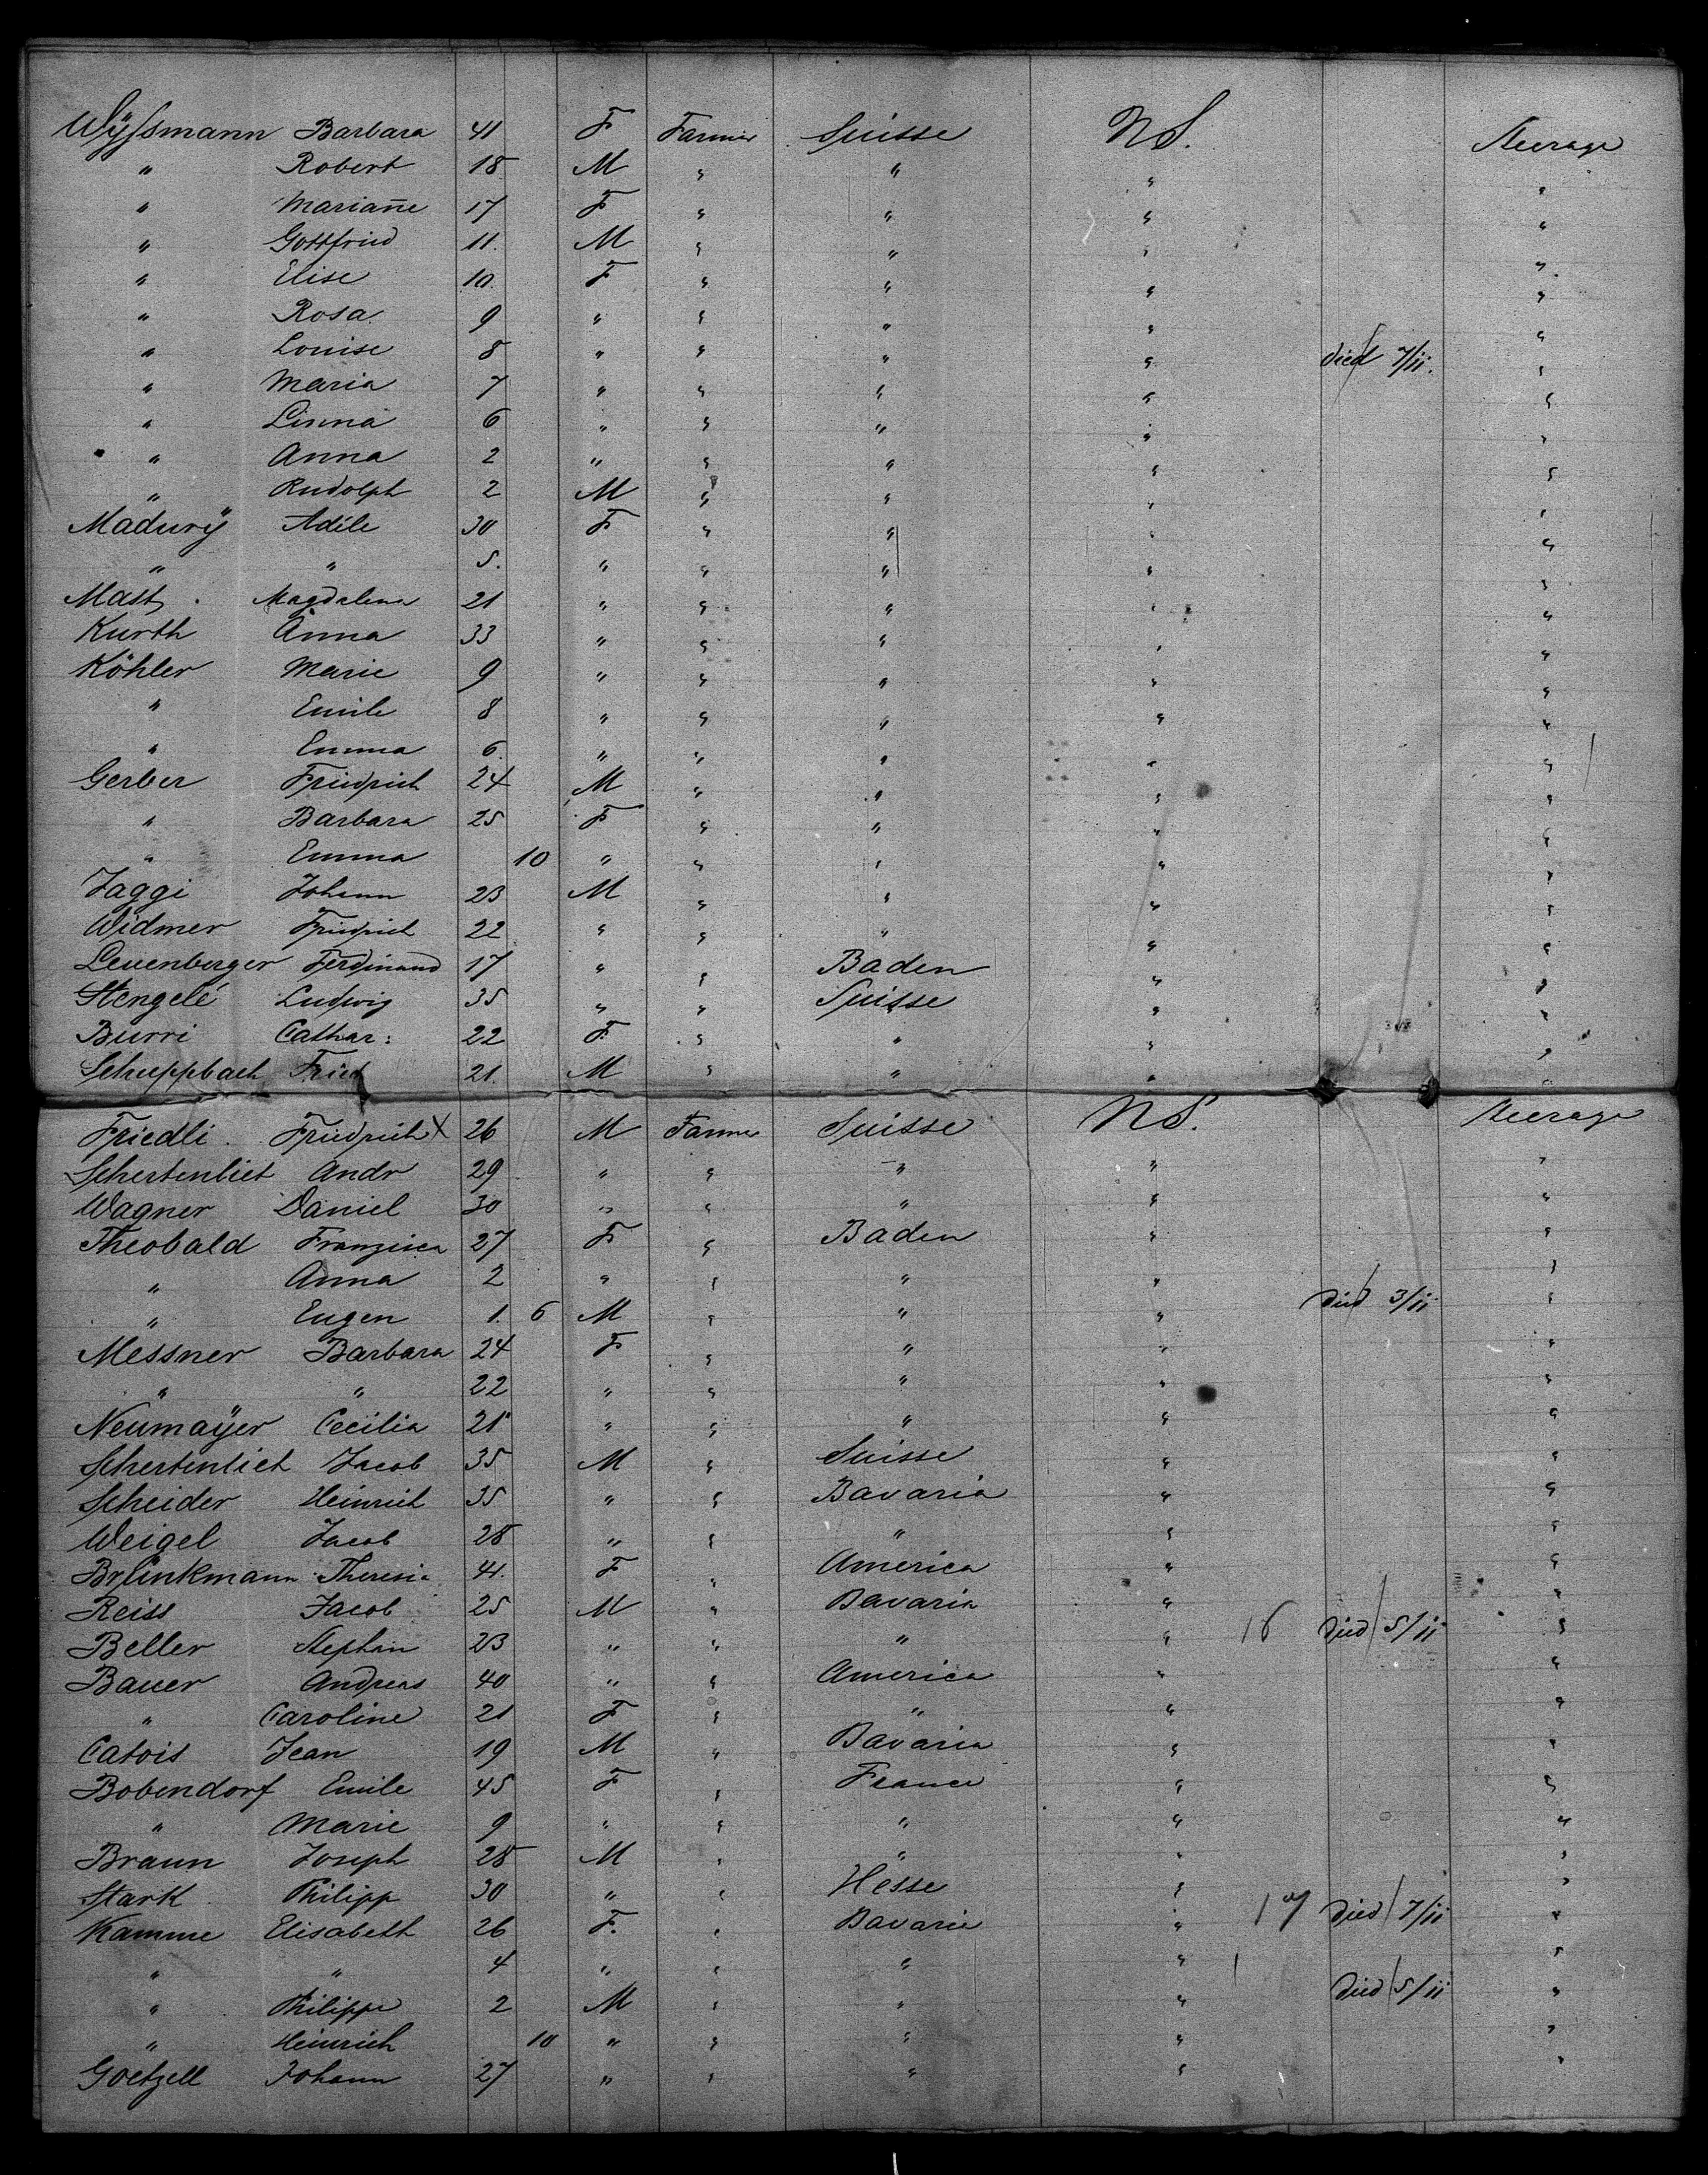 Wÿssmann Barbara 41 F Farmer Suisse N S. Steerage
" Robert 18 M " " " "
" Marian̄e 17 F " " " "
" Gottfried 11. M " " " "
" Elise 10. F " " " "
" Rosa 9 " " " " "
" Louise 8 " " " " died 7/11. "
" Maria 7 " " " " "
" Linna 6 " " " " "
" Anna 2 " " " " "
" Rudolph 2 M " " " "
Madurÿ Adéle 30 F " " " "
" " 5. " " " " "
Mast Magdalena 21 " " " " "
Kurth Anna 33 " " " " "
Köhler Marie 9 " " " " "
" Emile 8 " " " " "
" Emma 6 " " " " "
Gerber Friedrich 24 M " " " "
" Barbara 25 F " " " "
" Emma 10 " " " " "
Jaggi Johann 23 M " " " "
Widmer Friedrich 22 " " " " "
Leuenberger Ferdinand 17 " " Baden " "
Stengelé Ludwig 35 " " Suisse " "
Burri Cathar: 22 F " " " "
Schuppbach Fried 21. M " " " "
Friedli Friedrich X 26 M Farmer Suisse N S. Steerage
Schertenlict Andr 29 " " " " "
Wagner Daniel 30 " " " " "
Theobald Franzisca 27 F " Baden " "
" Anna 2 " " " " "
" Eugen 1. 6 M " " " died 3/11 "
Messner Barbara 24 F " " " "
" " 22 " " " " "
Neumaÿer Cecilia 21 " " " " "
Schertenlict Jacob 35 M " Suisse " "
Scheider Heinrich 35 " " Bavaria " "
Weigel Jacob 28 " " " " "
Brünkmann Theresia 41. F " America " "
Reiss Jacob 25 M " Bavaria " "
Beller Stephan 23 " " " " 16 died 5/11 "
Bauer Andreas 40 " " America " "
" Caroline 21 F " " " "
Catois Jean 19 M " Bavaria " "
Bobendorf Emile 45 F " France " "
" Marie 9 " " " " "
Braun Joseph 28 M " " " "
Stark Philipp 30 " " Hesse " "
Kamme Elisabeth 26 F. " Bavaria " 17 died 7/11 "
" " 4 " " " " "
" Philippe 2 M " " " 1 died 5/11 "
" Heinrich 10 " " " " "
Goetzell Johann 27 " " " " "